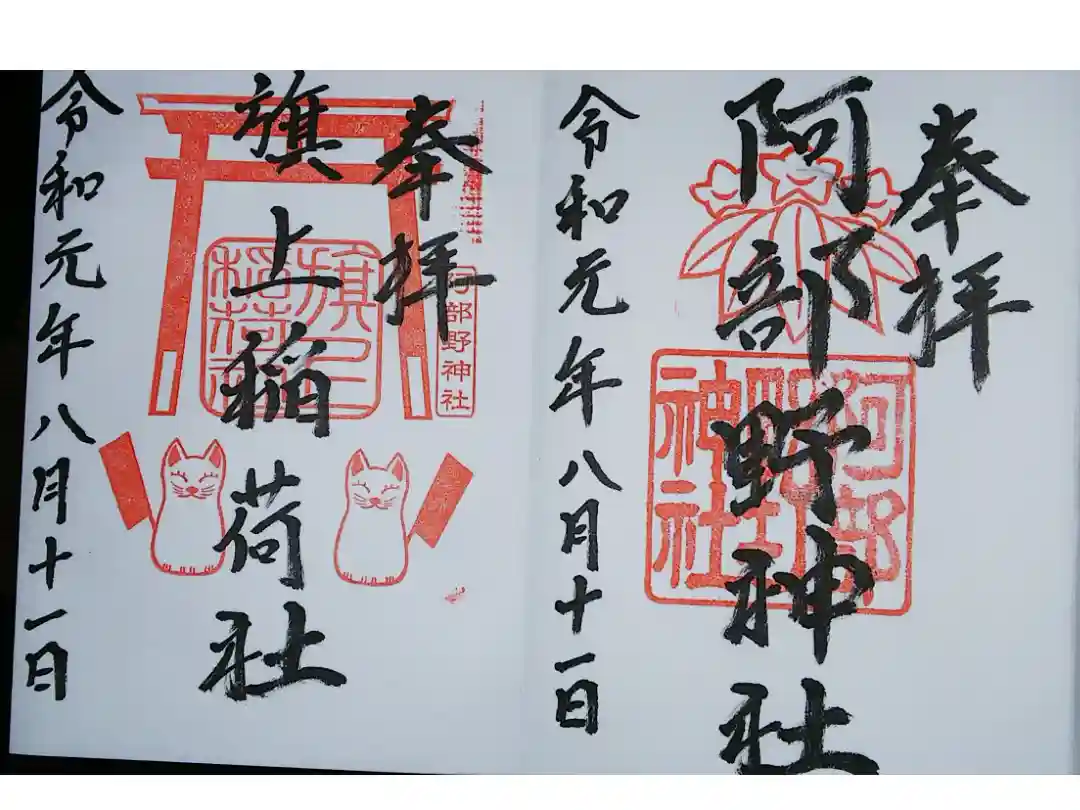 奉拝
阿部野神社
阿部野神社
令和元年八月十一日
奉拝
阿部野神社
旗上稲荷社
旗上稲荷社
令和元年八月十一日